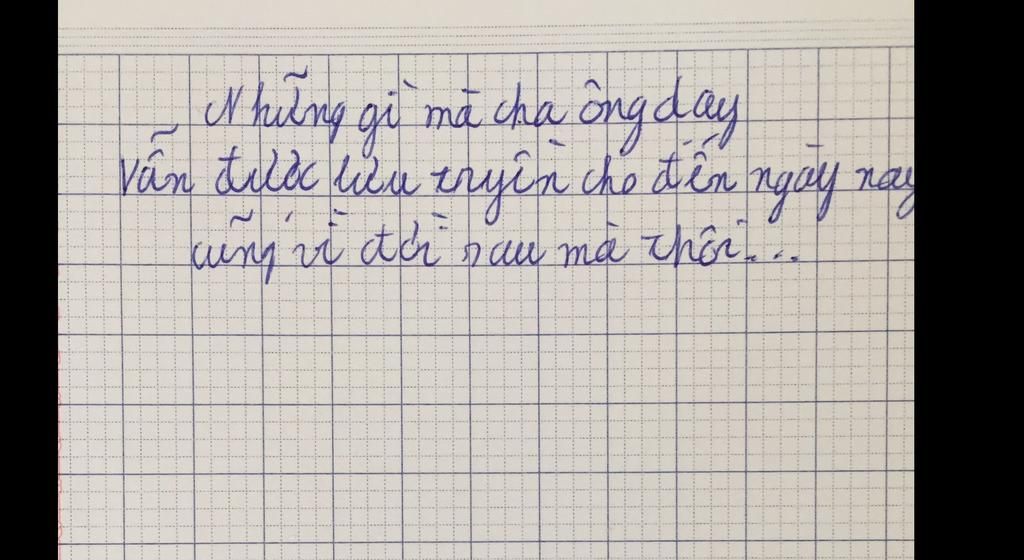 Những gì mà cha ông dạy
Vẫn được lưu truyền cho đến ngày nay
cũng vì đời sau mà thôi...